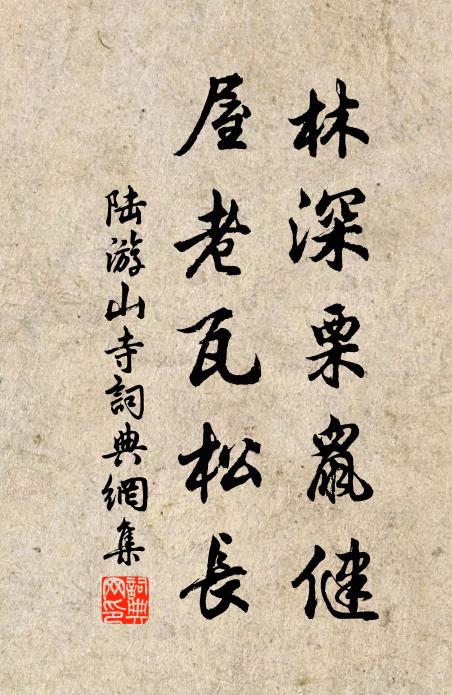 林深栗鼠健
屋老瓦松長
陆游山寺詞典網集
詞典網印